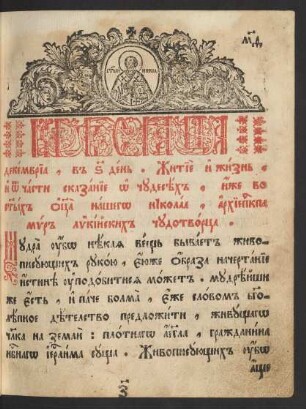 м҃д
мѣсѧца
декемврїа, въ ѕ҃ день. Житїе и жизнь,
и ѿ части сказанїе ѡ чудесѣхъ, иже во
ст҃ыхъ ѻц҃а нашегѡ нїколае, архїепк҃па
мѵръ лѷкїискихъ чудотворца.
Мудра оубѡ нѣкаѧ вещь бываетъ живо-
писующихъ рукою, еюже образа начертанїе
истиннѣ оуподобитисѧ можетъ. мудрѣиши
же есть, и паче болма, еже словомъ бг҃о-
лѣпное дѣтелство предложити, живущагѡ
чл҃ка на земли: плотнагѡ агг҃ла, гражданина
нб҃нагѡ іерл҃има суща. Живописующихъ оубѡ
аще
з҃